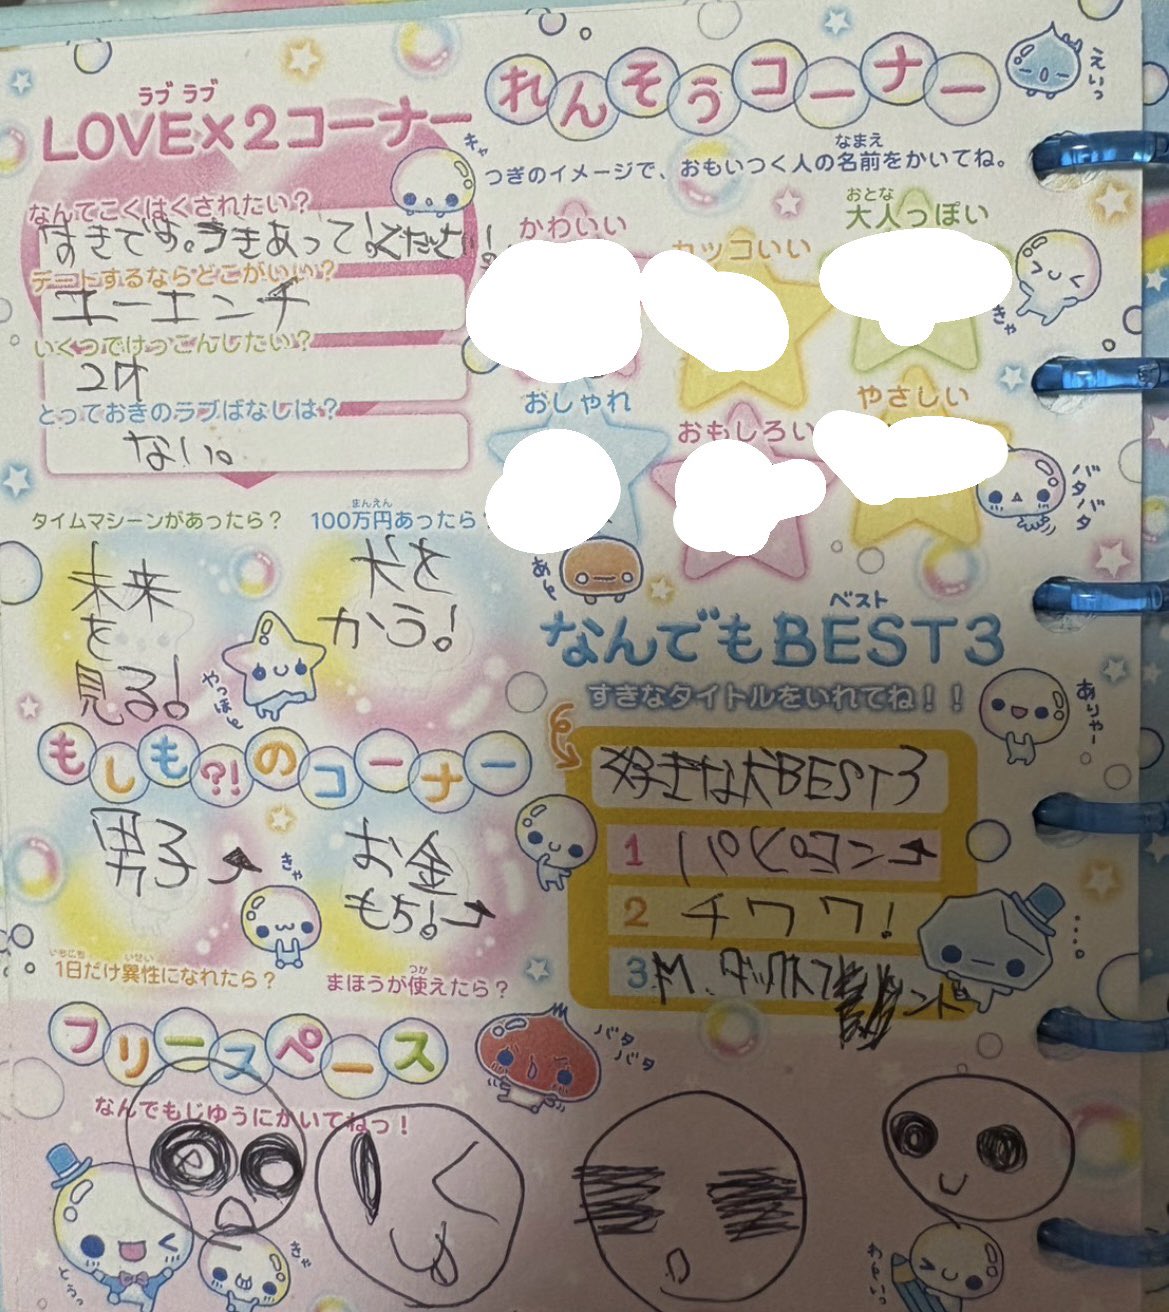 ラブ ラブ
LOVE×2コーナー
キャ
なんてこくはくされたい?
すきです。つきあって!ください!
デートするならどこがいい?
ユーエンチ
いくつでけっこんしたい?
24才
とっておきのラブばなしは?
ない。
れんそうコーナー
えいっ
つぎのイメージで、おもいつく人の名前をかいてね。
なまえ
かわいい
カッコいい
おとな
大人っぽい
きゃ
おしゃれ
おもしろい
やさしい
バタバタ
あレ
タイムマシーンがあったら?
未来
を
見る!
やっほー
まんえん
100万円あったら
犬を
かう!
もしも?!のコーナー
男子
きゃ
お金
もち!
いちにち いせい
1日だけ異性になれたら?
つか
まほうが使えたら?
ベスト
なんでもBEST3
すきなタイトルをいれてね!!
ありゃー
好きな犬BEST3
1 パピヨン
2 チワワ!
3 M.ダックスフンド
フリースペース
なんでもじゆうにかいてねっ!
バタバタ
とうっ
きゃ
わーいっ